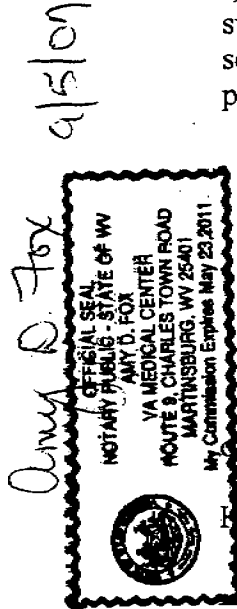 Amy D. Fox 9/5/07
OFFICIAL SEAL
NOTARY PUBLIC - STATE OF WV
AMY D. FOX
VA MEDICAL CENTER
ROUTE 9, CHARLES TOWN ROAD
MARTINSBURG, WV 25401
My Commission Expires May 23, 2011